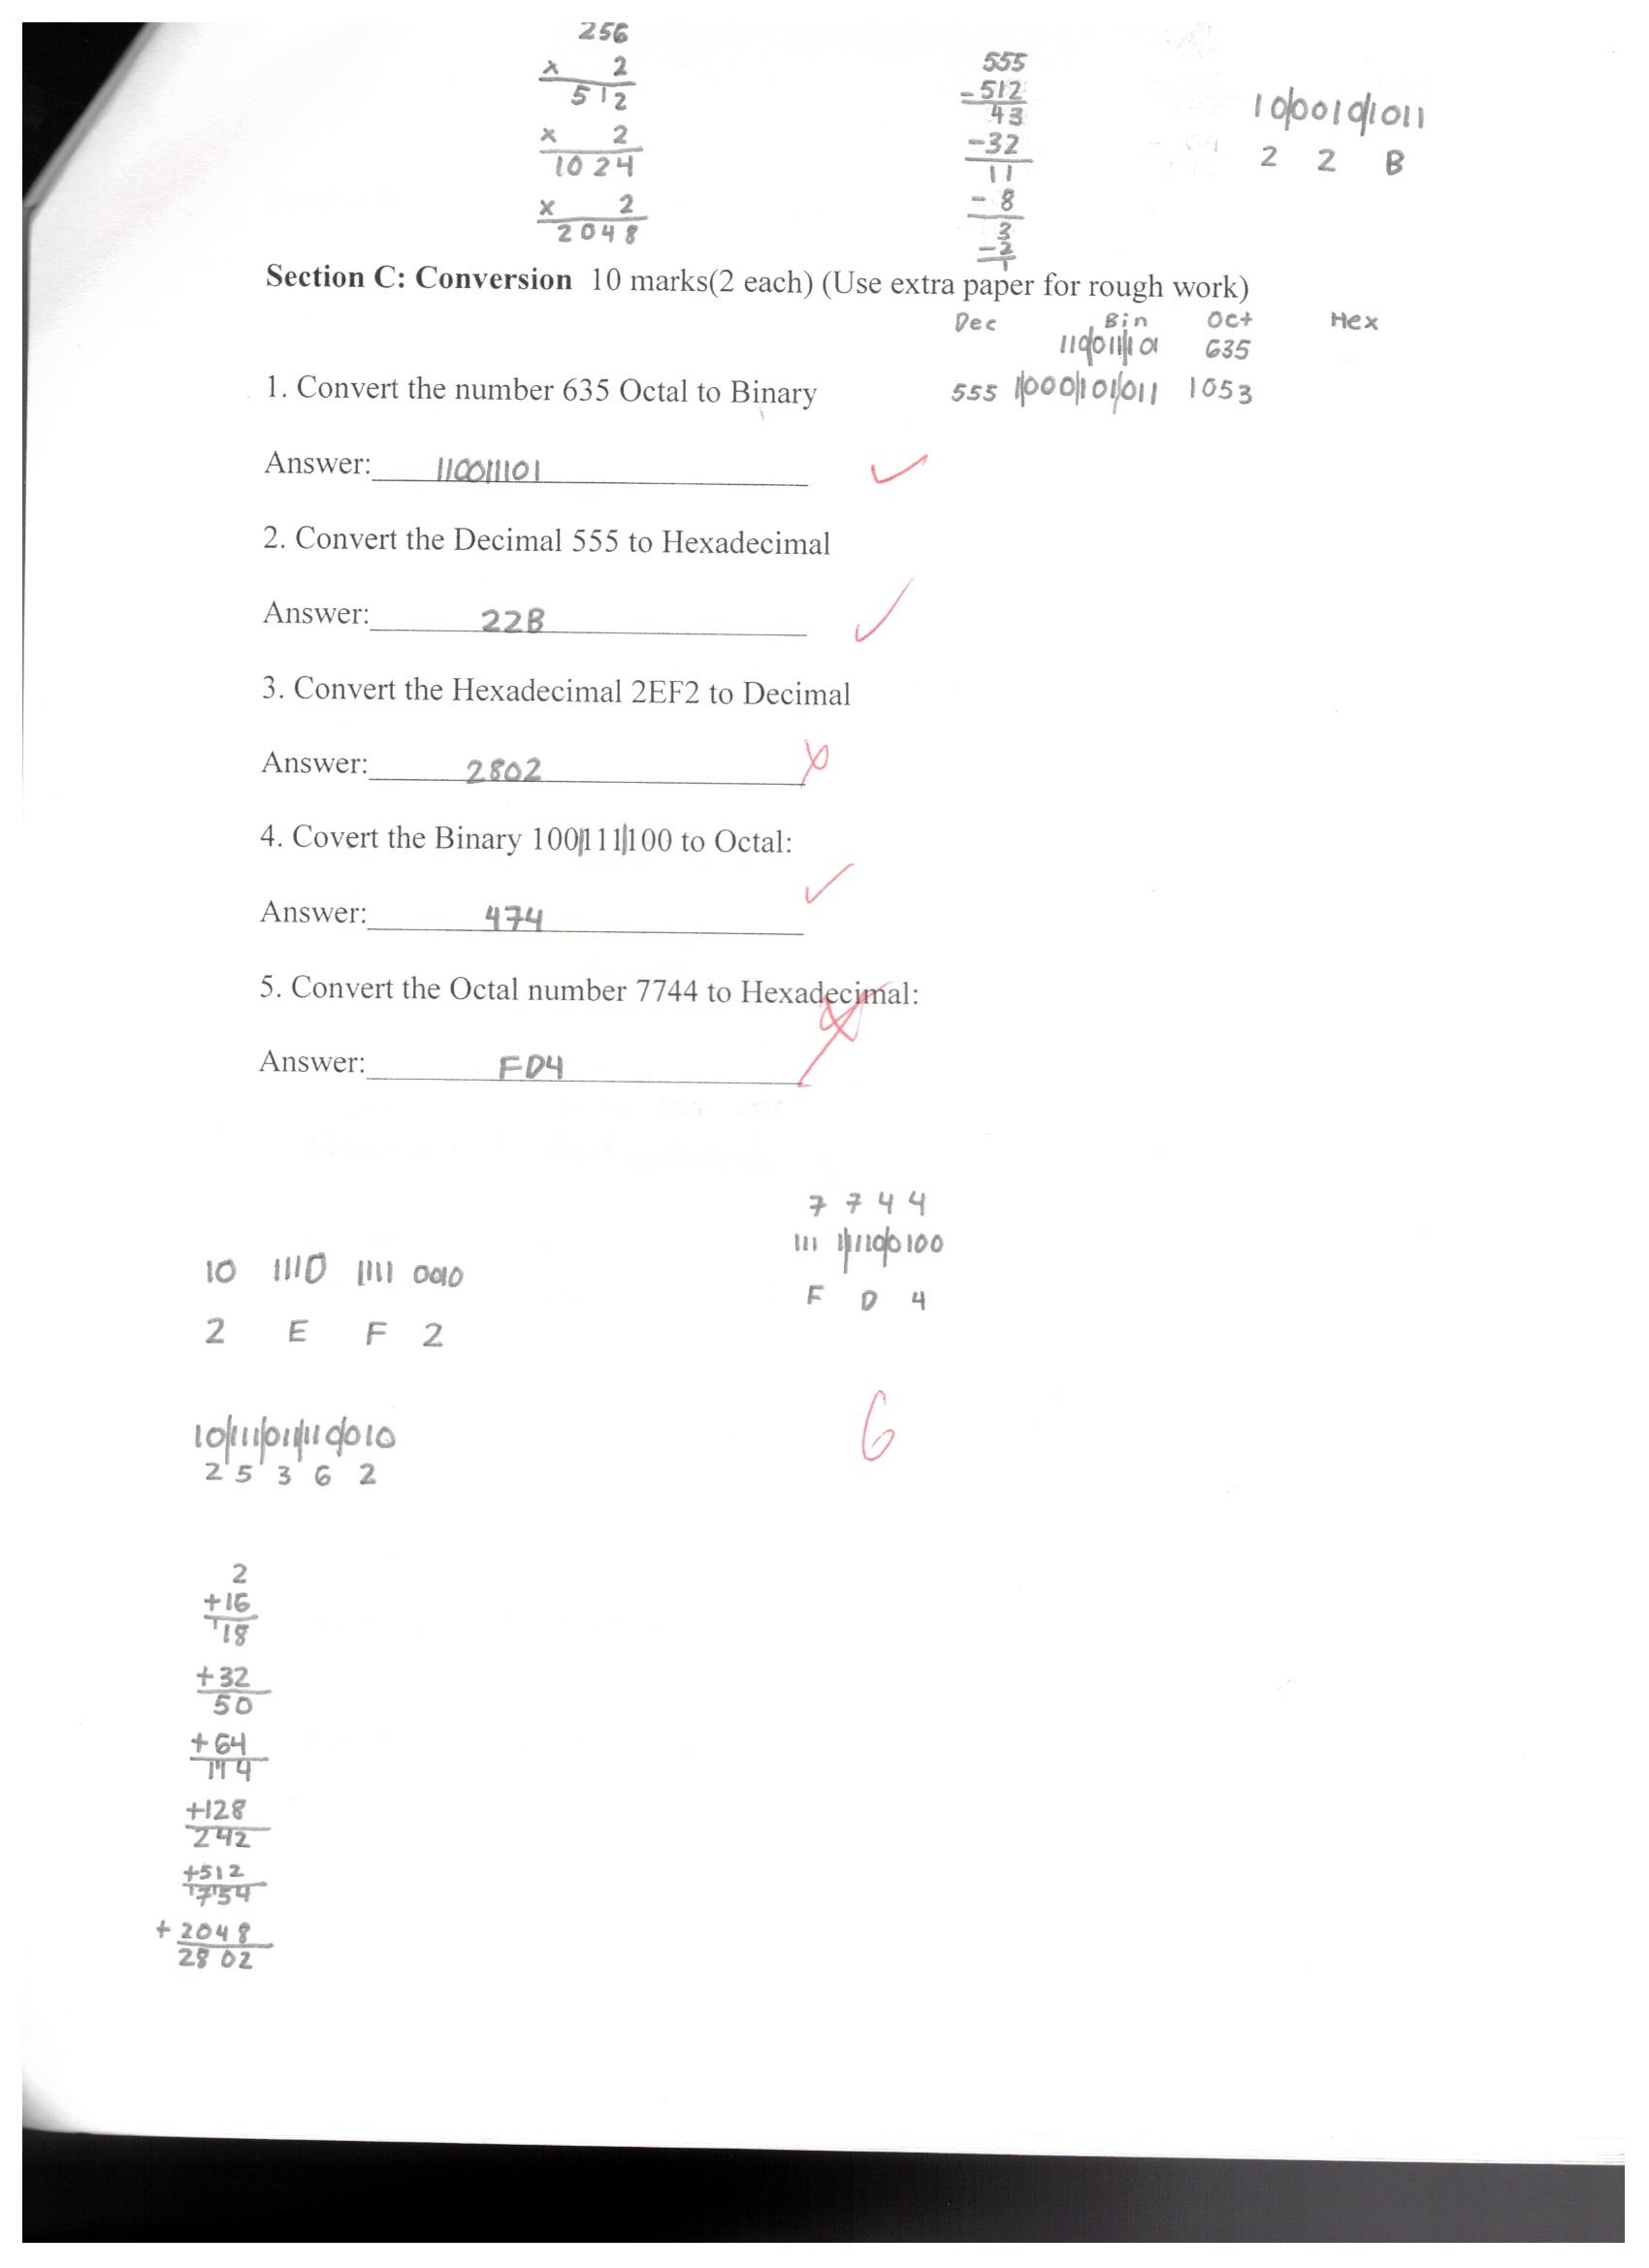 256
x 2
512
x 2
1024
x 2
2048
555
-512
43
-32
11
- 8
3
-2
1
10|0010|1011
2 2 B
Section C: Conversion 10 marks(2 each) (Use extra paper for rough work)
Dec Bin Oct Hex
110|011|101 635
1. Convert the number 635 Octal to Binary
555 1|000|101|011 1053
Answer: 110011101
2. Convert the Decimal 555 to Hexadecimal
Answer: 22B
3. Convert the Hexadecimal 2EF2 to Decimal
Answer: 2802
4. Covert the Binary 100|111|100 to Octal:
Answer: 474
5. Convert the Octal number 7744 to Hexadecimal:
Answer: FD4
7 7 4 4
111 1|1110|0100
F D 4
10 1110 1111 0010
2 E F 2
6
10|111|011|110|010
2 5 3 6 2
2
+16
18
+32
50
+64
114
+128
242
+512
754
+2048
2802